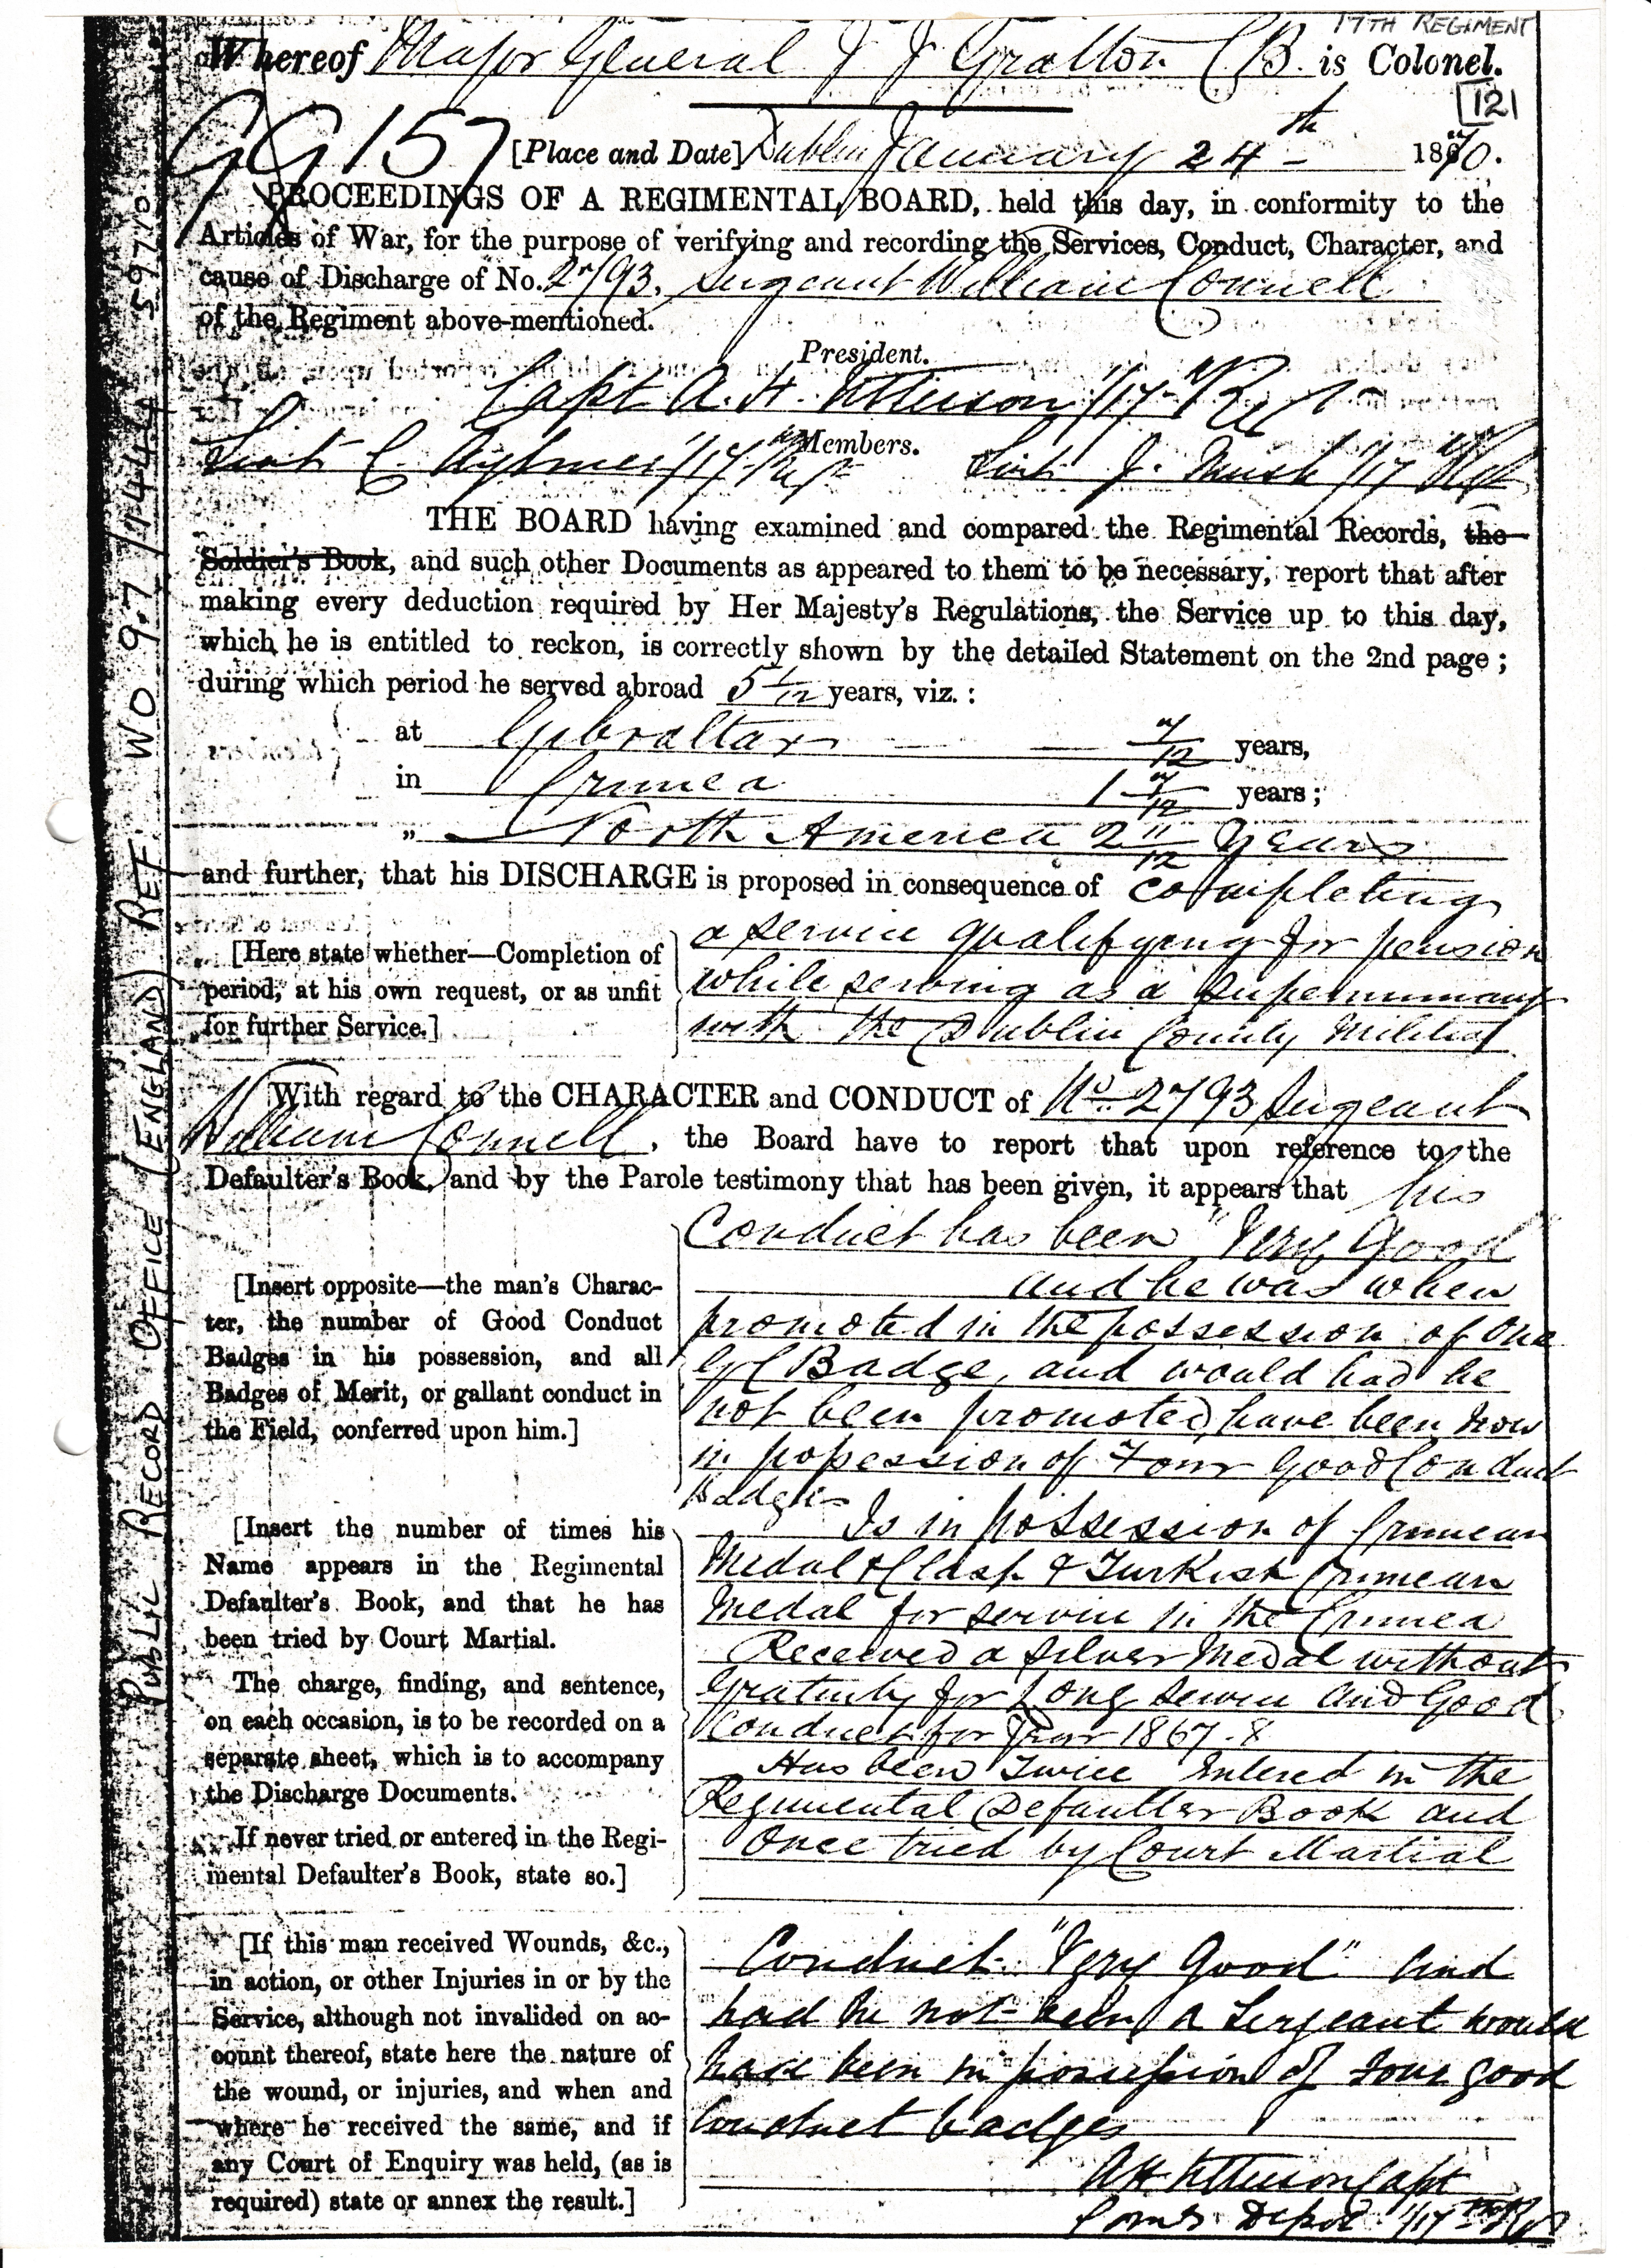 17TH REGIMENT
Whereof Major General J J Gratton CB. is Colonel.
121
GG 157
[Place and Date] Dublin January 24th 1870.
PROCEEDINGS OF A REGIMENTAL BOARD, held this day, in conformity to the
Articles of War, for the purpose of verifying and recording the Services, Conduct, Character, and
cause of Discharge of No. 2793. Sergeant William Connell
of the Regiment above-mentioned.
President.
Capt A. H. 1/17th Regt
Members.
Lieut C. Aylmer 1/17th Regt Lieut J. 1/17th Regt
THE BOARD having examined and compared the Regimental Records, the
Soldier's Book, and such other Documents as appeared to them to be necessary, report that after
making every deduction required by Her Majesty's Regulations, the Service up to this day,
which he is entitled to reckon, is correctly shown by the detailed Statement on the 2nd page;
during which period he served abroad 5 1/12 years, viz.:
at Gibraltar 7/12 years,
in Crimea 1 7/12 years;
„ North America 2 11/12 years
and further, that his DISCHARGE is proposed in consequence of completing
[Here state whether—Completion of
period, at his own request, or as unfit
for further Service.]
a service qualifying for pension
while serving as a Supernumary
with the Dublin County Militia
With regard to the CHARACTER and CONDUCT of No. 2793 Sergeant
William Connell, the Board have to report that upon reference to the
Defaulter's Book, and by the Parole testimony that has been given, it appears that his
[Insert opposite—the man's Charac-
ter, the number of Good Conduct
Badges in his possession, and all
Badges of Merit, or gallant conduct in
the Field, conferred upon him.]
Conduct has been "Very Good
and he was when
promoted in the possession of One
GC Badge, and would had he
not been promoted have been now
in possession of Four Good Conduct
Badges
[Insert the number of times his
Name appears in the Regimental
Defaulter's Book, and that he has
been tried by Court Martial.
The charge, finding, and sentence,
on each occasion, is to be recorded on a
separate sheet, which is to accompany
the Discharge Documents.
If never tried or entered in the Regi-
mental Defaulter's Book, state so.]
Is in possession of Crimean
Medal & Clasp & Turkish Crimean
Medal for service in the Crimea
Received a silver Medal without
Gratuity for Long Service and Good
Conduct for Year 1867.8
Has been Twice Entered in the
Regimental Defaulter Book and
Once tried by Court Martial
[If this man received Wounds, &c.,
in action, or other Injuries in or by the
Service, although not invalided on ac-
count thereof, state here the nature of
the wound, or injuries, and when and
where he received the same, and if
any Court of Enquiry was held, (as is
required) state or annex the result.]
Conduct "Very Good" and
had he not been a Sergeant would
have been in possession of four good
Conduct badges
AH Capt
Comg Depot 1/17th Regt
PUBLIC RECORD OFFICE (ENGLAND) REF. WO 97/1444 59710